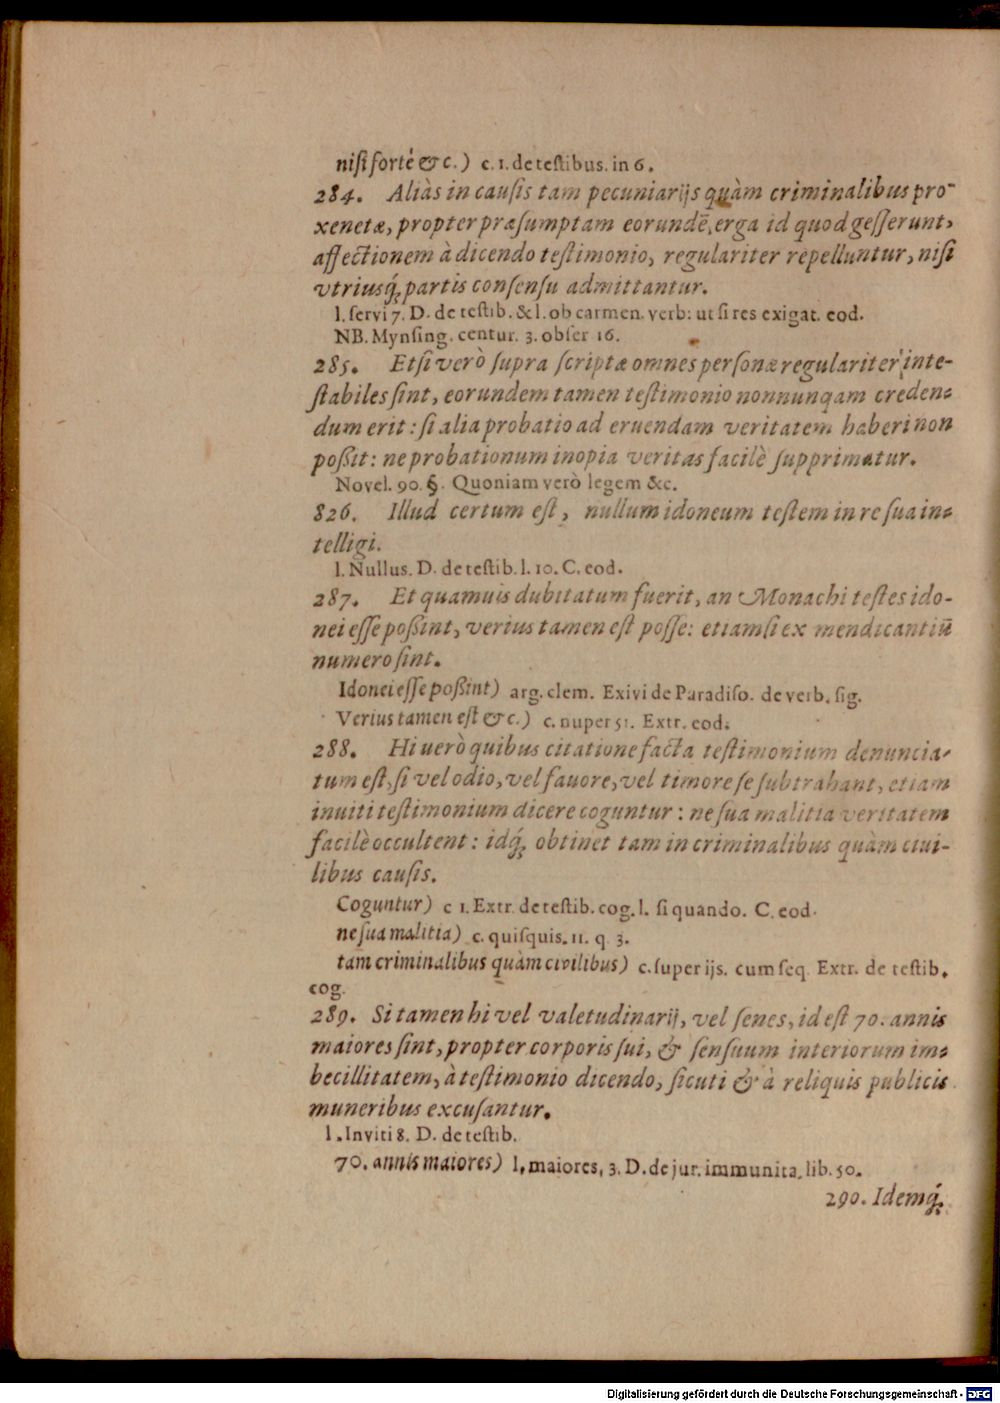 niſi fortè &c.) c. 1. de teſtibus. in 6.
284. Aliàs in cauſis tam pecuniarijs quàm criminalibus pro-
xenetæ, propter præſumptam eorundē, erga id quod geſſerunt,
affectionem à dicendo teſtimonio, regulariter repelluntur, niſi
vtriusq́; partis conſenſu admittantur.
l. ſervi 7. D. de teſtib. & l. ob carmen. verb: ut ſi res exigat. eod.
NB. Mynſing. centur. 3. obſer 16.
285. Etſi verò ſupra ſcriptæ omnes perſonæ regulariter inte-
ſtabiles ſint, eorundem tamen teſtimonio nonnunqam creden-
dum erit: ſi alia probatio ad eruendam veritatem haberi non
poßit: ne probationum inopia veritas facilè ſupprimatur.
Novel. 90. §. Quoniam verò legem &c.
826. Illud certum eſt, nullum idoneum teſtem in re ſua in-
telligi.
l. Nullus. D. de teſtib. l. 10. C. eod.
287. Et quamuis dubitatum fuerit, an Monachi teſtes ido-
nei eſſe poßint, verius tamen eſt poſſe: etiamſi ex mendicantiū
numero ſint.
Idonei eſſe poßint) arg. clem. Exivi de Paradiſo. de verb. ſig.
Verius tamen eſt &c.) c. nuper 51. Extr. eod.
288. Hi uerò quibus citatione facta teſtimonium denuncia-
tum eſt, ſi vel odio, vel fauore, vel timore ſe ſubtrahant, etiam
inuiti teſtimonium dicere coguntur: ne ſua malitia veritatem
facilè occultent: idq́; obtinet tam in criminalibus quàm ciui-
libus cauſis.
Coguntur) c 1. Extr. de teſtib. cog. l. ſi quando. C. eod.
ne ſua malitia) c. quiſquis. 11. q. 3.
tam criminalibus quàm civilibus) c. ſuper ijs. cum ſeq. Extr. de teſtib.
cog.
289. Si tamen hi vel valetudinarij, vel ſenes, id eſt 70. annis
maiores ſint, propter corporis ſui, & ſenſuum interiorum im-
becillitatem, à teſtimonio dicendo, ſicuti & à reliquis publicis
muneribus excuſantur.
l. Inviti 8. D. de teſtib.
70. annis maiores) l. maiores, 3. D. de jur. immunita. lib. 50.
290. Idemq́;
Digitalisierung gefördert durch die Deutsche Forschungsgemeinschaft - DFG